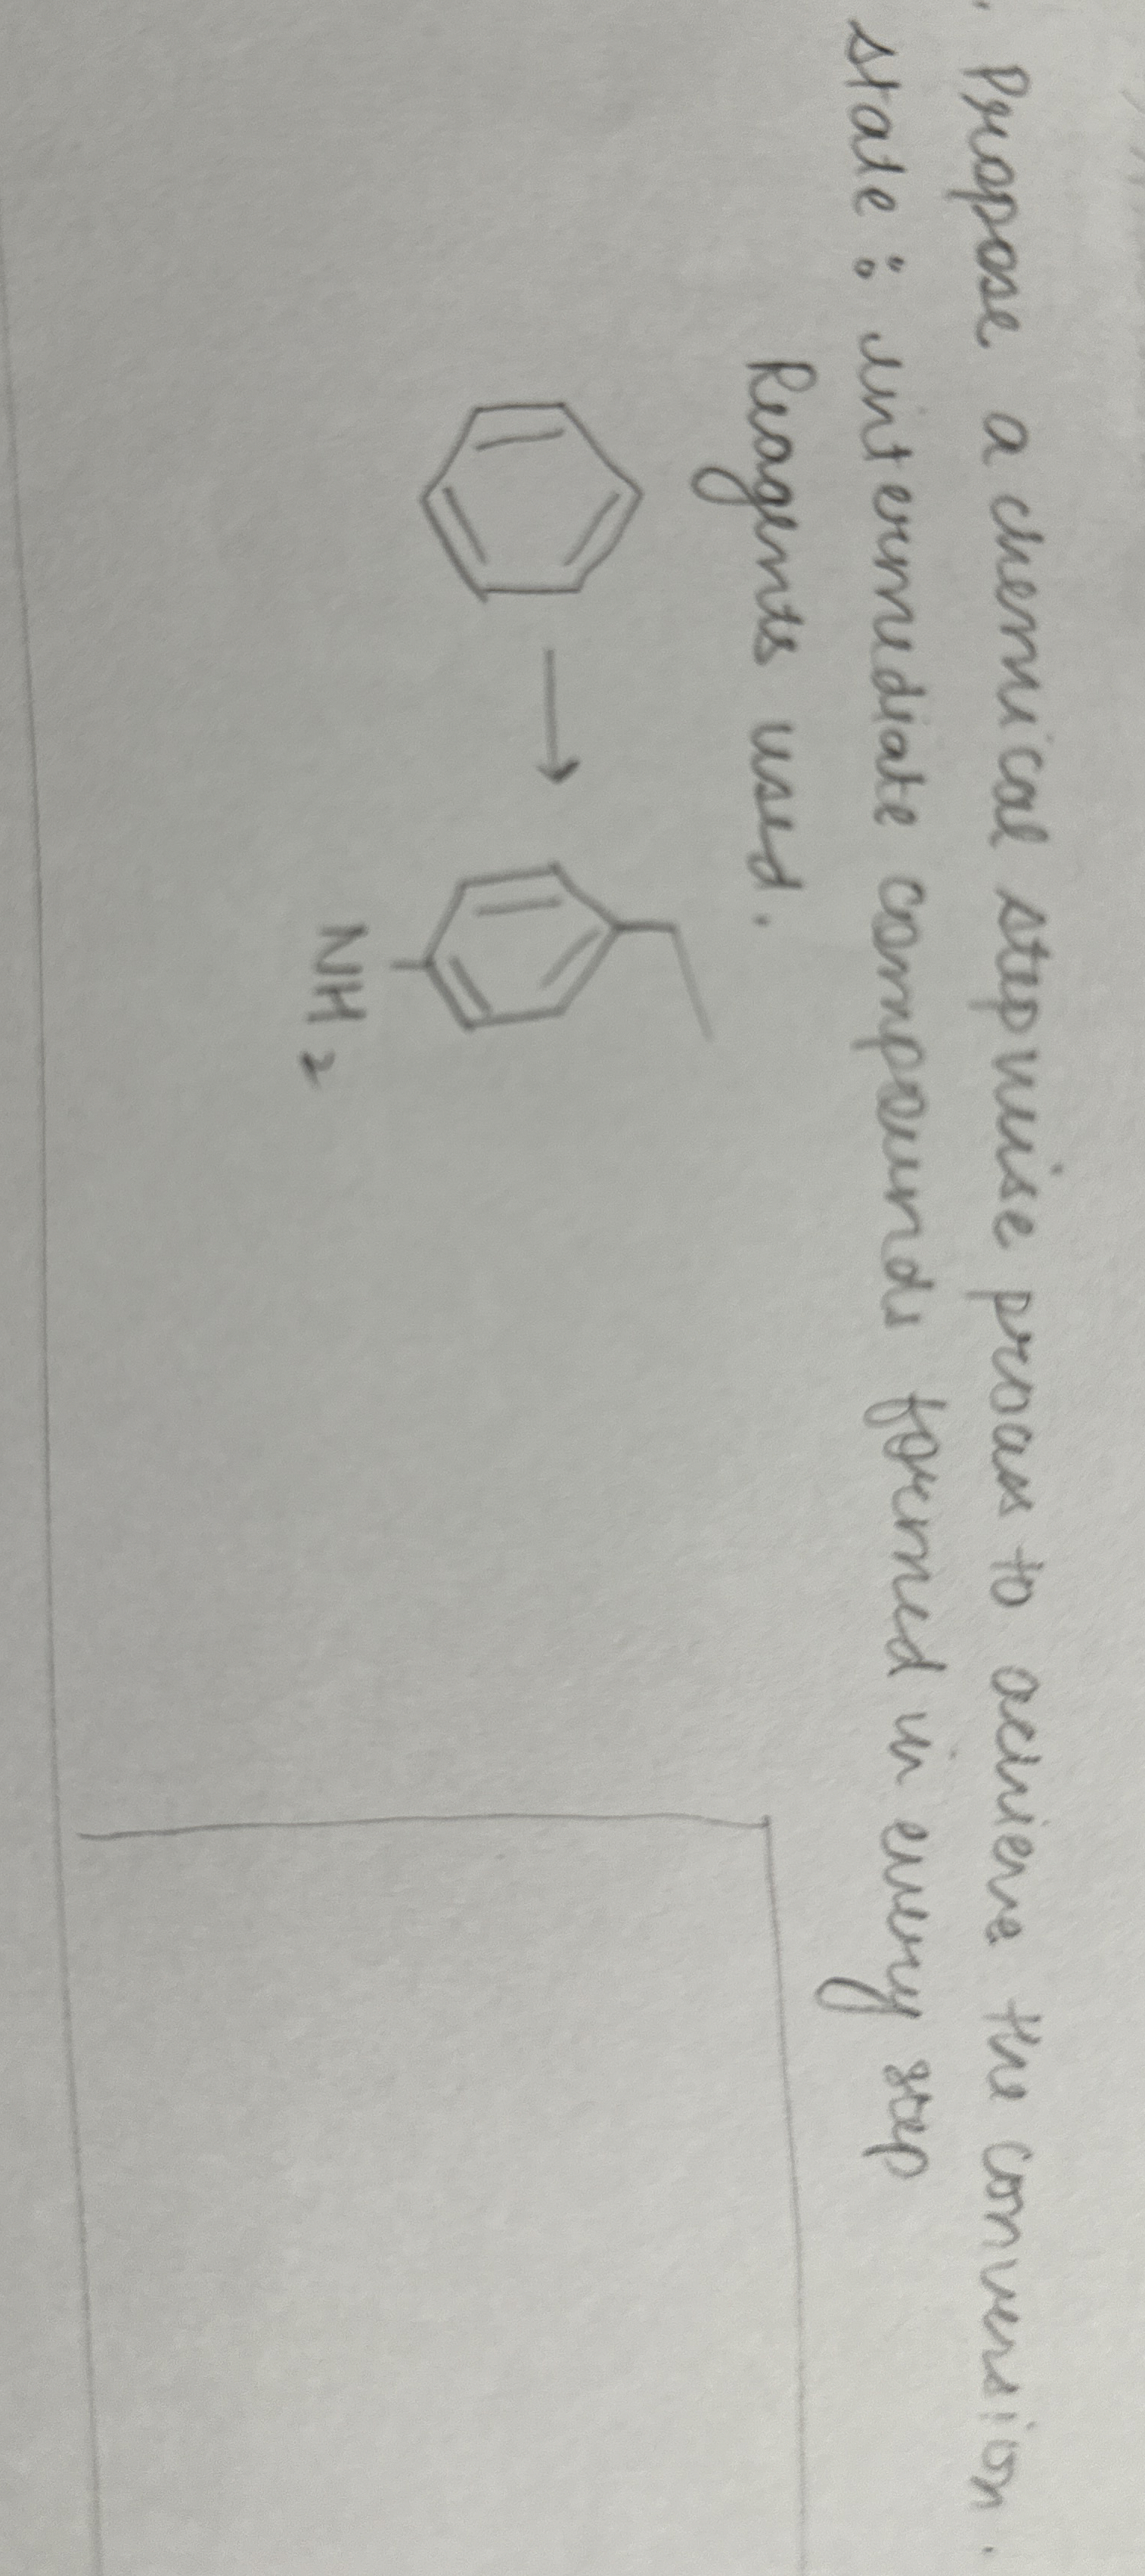 Propose a chemical stepwise process to achieve the conversion.
state : intermediate compounds formed in every step
Reagents used.
NH2